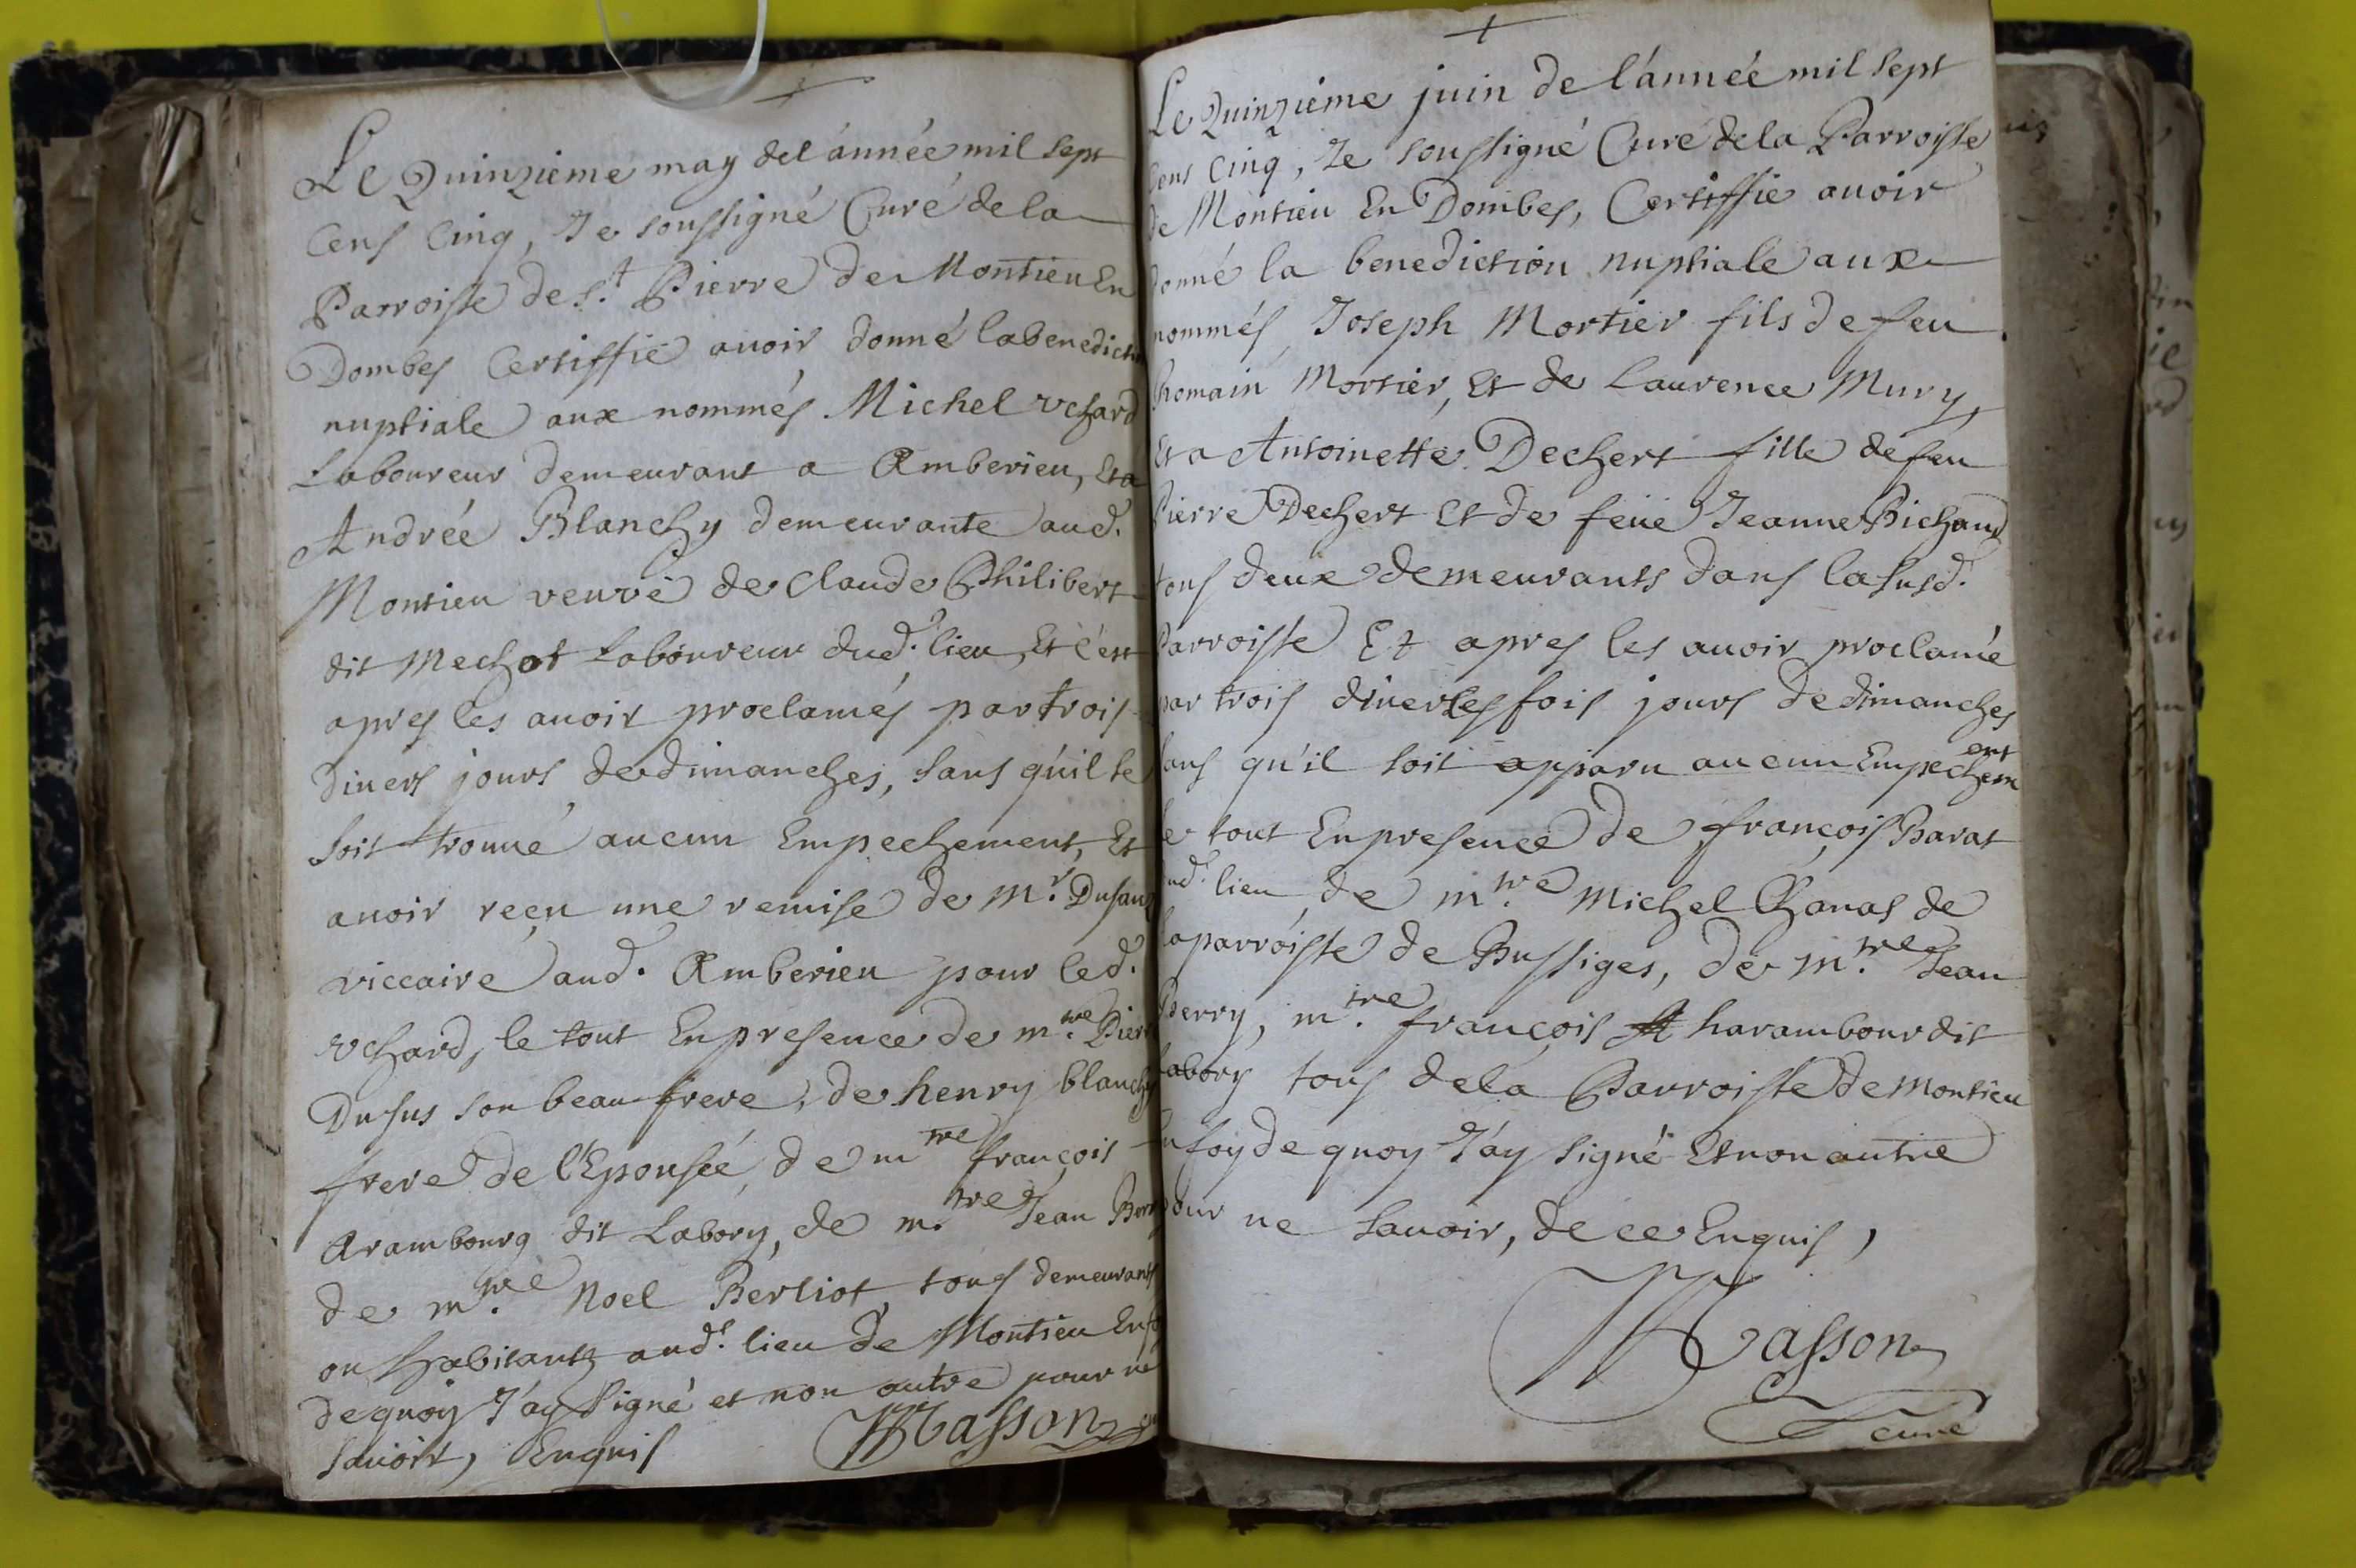 Le Quinzieme may de l'année mil sept
Cens Cinq, Je soussigné Curé de la
Parroisse de St. Pierre de Montieu En
Dombes Certiffie avoir donné la benedicti
nuptiale aux nommés Michel Vchard
Laboureur demeurant a Amberieu, Et a
Andrée Blanchy demeurante aud.
Montieu veuve de Claude Philibert
dit Mechot Laboureur dud. lieu, Et c'est
apres les avoir proclamés par trois
divers jours de dimanches, sans qu'il se
soit trouvé aucun Empechement, Et
avoir reçu une remise de Mr. Dusau
viccaire aud. Amberieu pour led.
Vchard, le tout En presence de mre. Pierr
Dusus son beau frere, de henry blanchy
frere de l'Epousée, de mre françois
Arambourg dit Labory, de mre. Jean Berry
de mre. Noel Berliot, tous demeurants
ou habitants aud. lieu de Montieu En fo
de quoy J'ay signé et non autre pour ne
savoir, Enquis Masson
+
Le Quinzieme juin de l'année mil sept
Cens Cinq, Je soussigné Curé de la Parroisse
de Montieu En Dombes, Certiffie avoir
donné la benediction nuptiale aux
nommés Joseph Mortier fils de feu
Romain Mortier, Et de Laurence Mury,
Et a Antoinette Dechert fille de feu
Pierre Dechert Et de feüe Jeanne Pichaud
tous deux demeurants dans la susd.
Parroisse Et apres les avoir proclamé
par trois diverses fois jours de dimanches
sans qu'il soit apparu aucun Empechement
le tout En presence de françois Barat
dud. lieu, de mre. Michel Chanas de
la parroisse de Bussiges, de mre. Jean
Berry, mre. françois harambour dit
Labory tous de la Parroisse de Montieu
En foy de quoy J'ay signé Et non autre
pour ne savoir, de ce Enquis,
Masson
curé